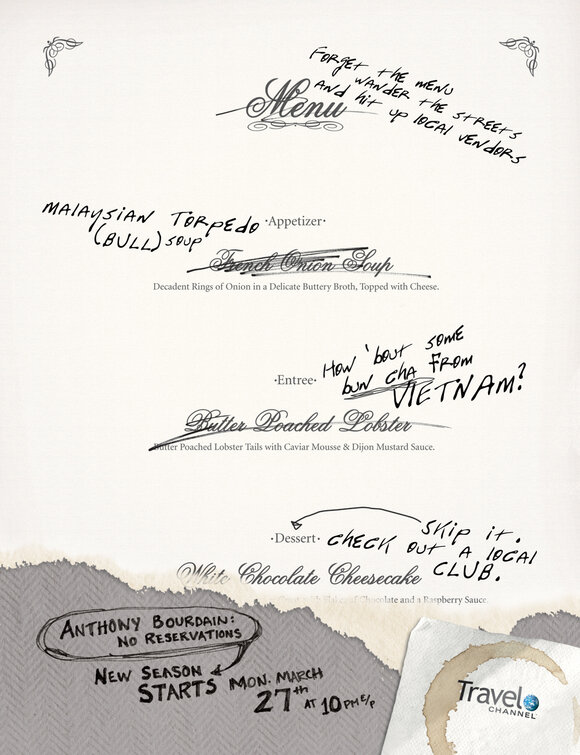 Forget the menu
wander the streets
and hit up local vendors
Menu
Malaysian Torpedo
(Bull) Soup
·Appetizer·
French Onion Soup
Decadent Rings of Onion in a Delicate Buttery Broth, Topped with Cheese.
How 'bout some
bun cha from
VIETNAM?
·Entree·
Butter Poached Lobster
Butter Poached Lobster Tails with Caviar Mousse & Dijon Mustard Sauce.
Skip it.
·Dessert· Check out a local
club.
White Chocolate Cheesecake
of Chocolate and a Raspberry Sauce
Anthony Bourdain:
No Reservations
New Season
Starts Mon. March
27th at 10 PM E/P
Travel
CHANNEL